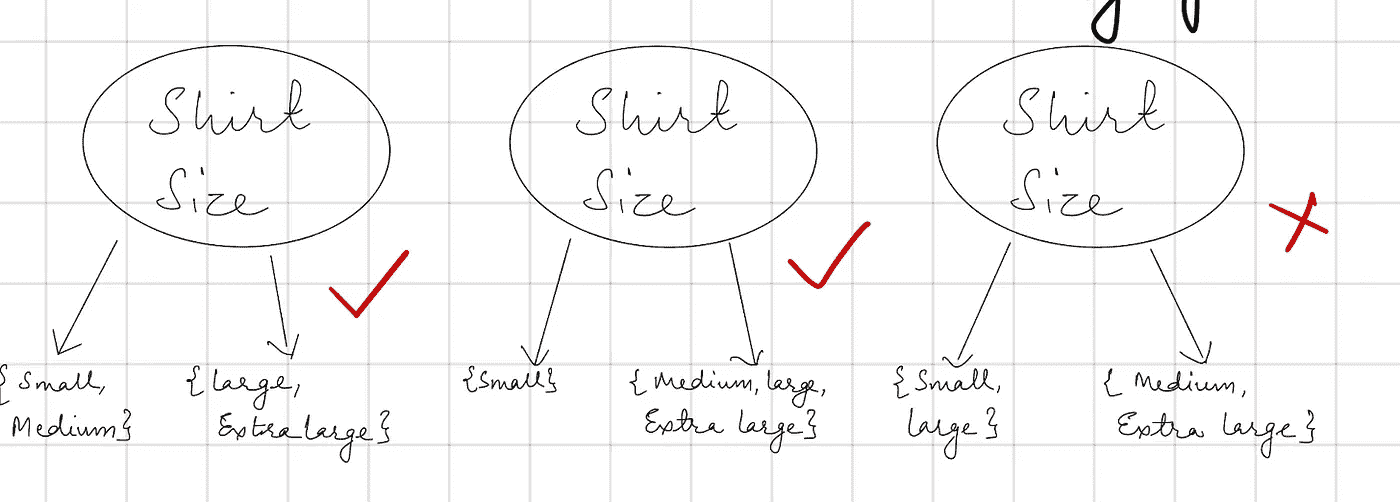 Shirt
Size
{Small,
Medium}
{large,
Extra large}
Shirt
Size
{Small}
{Medium, large,
Extra large}
Shirt
Size
{Small,
large}
{Medium,
Extra large}